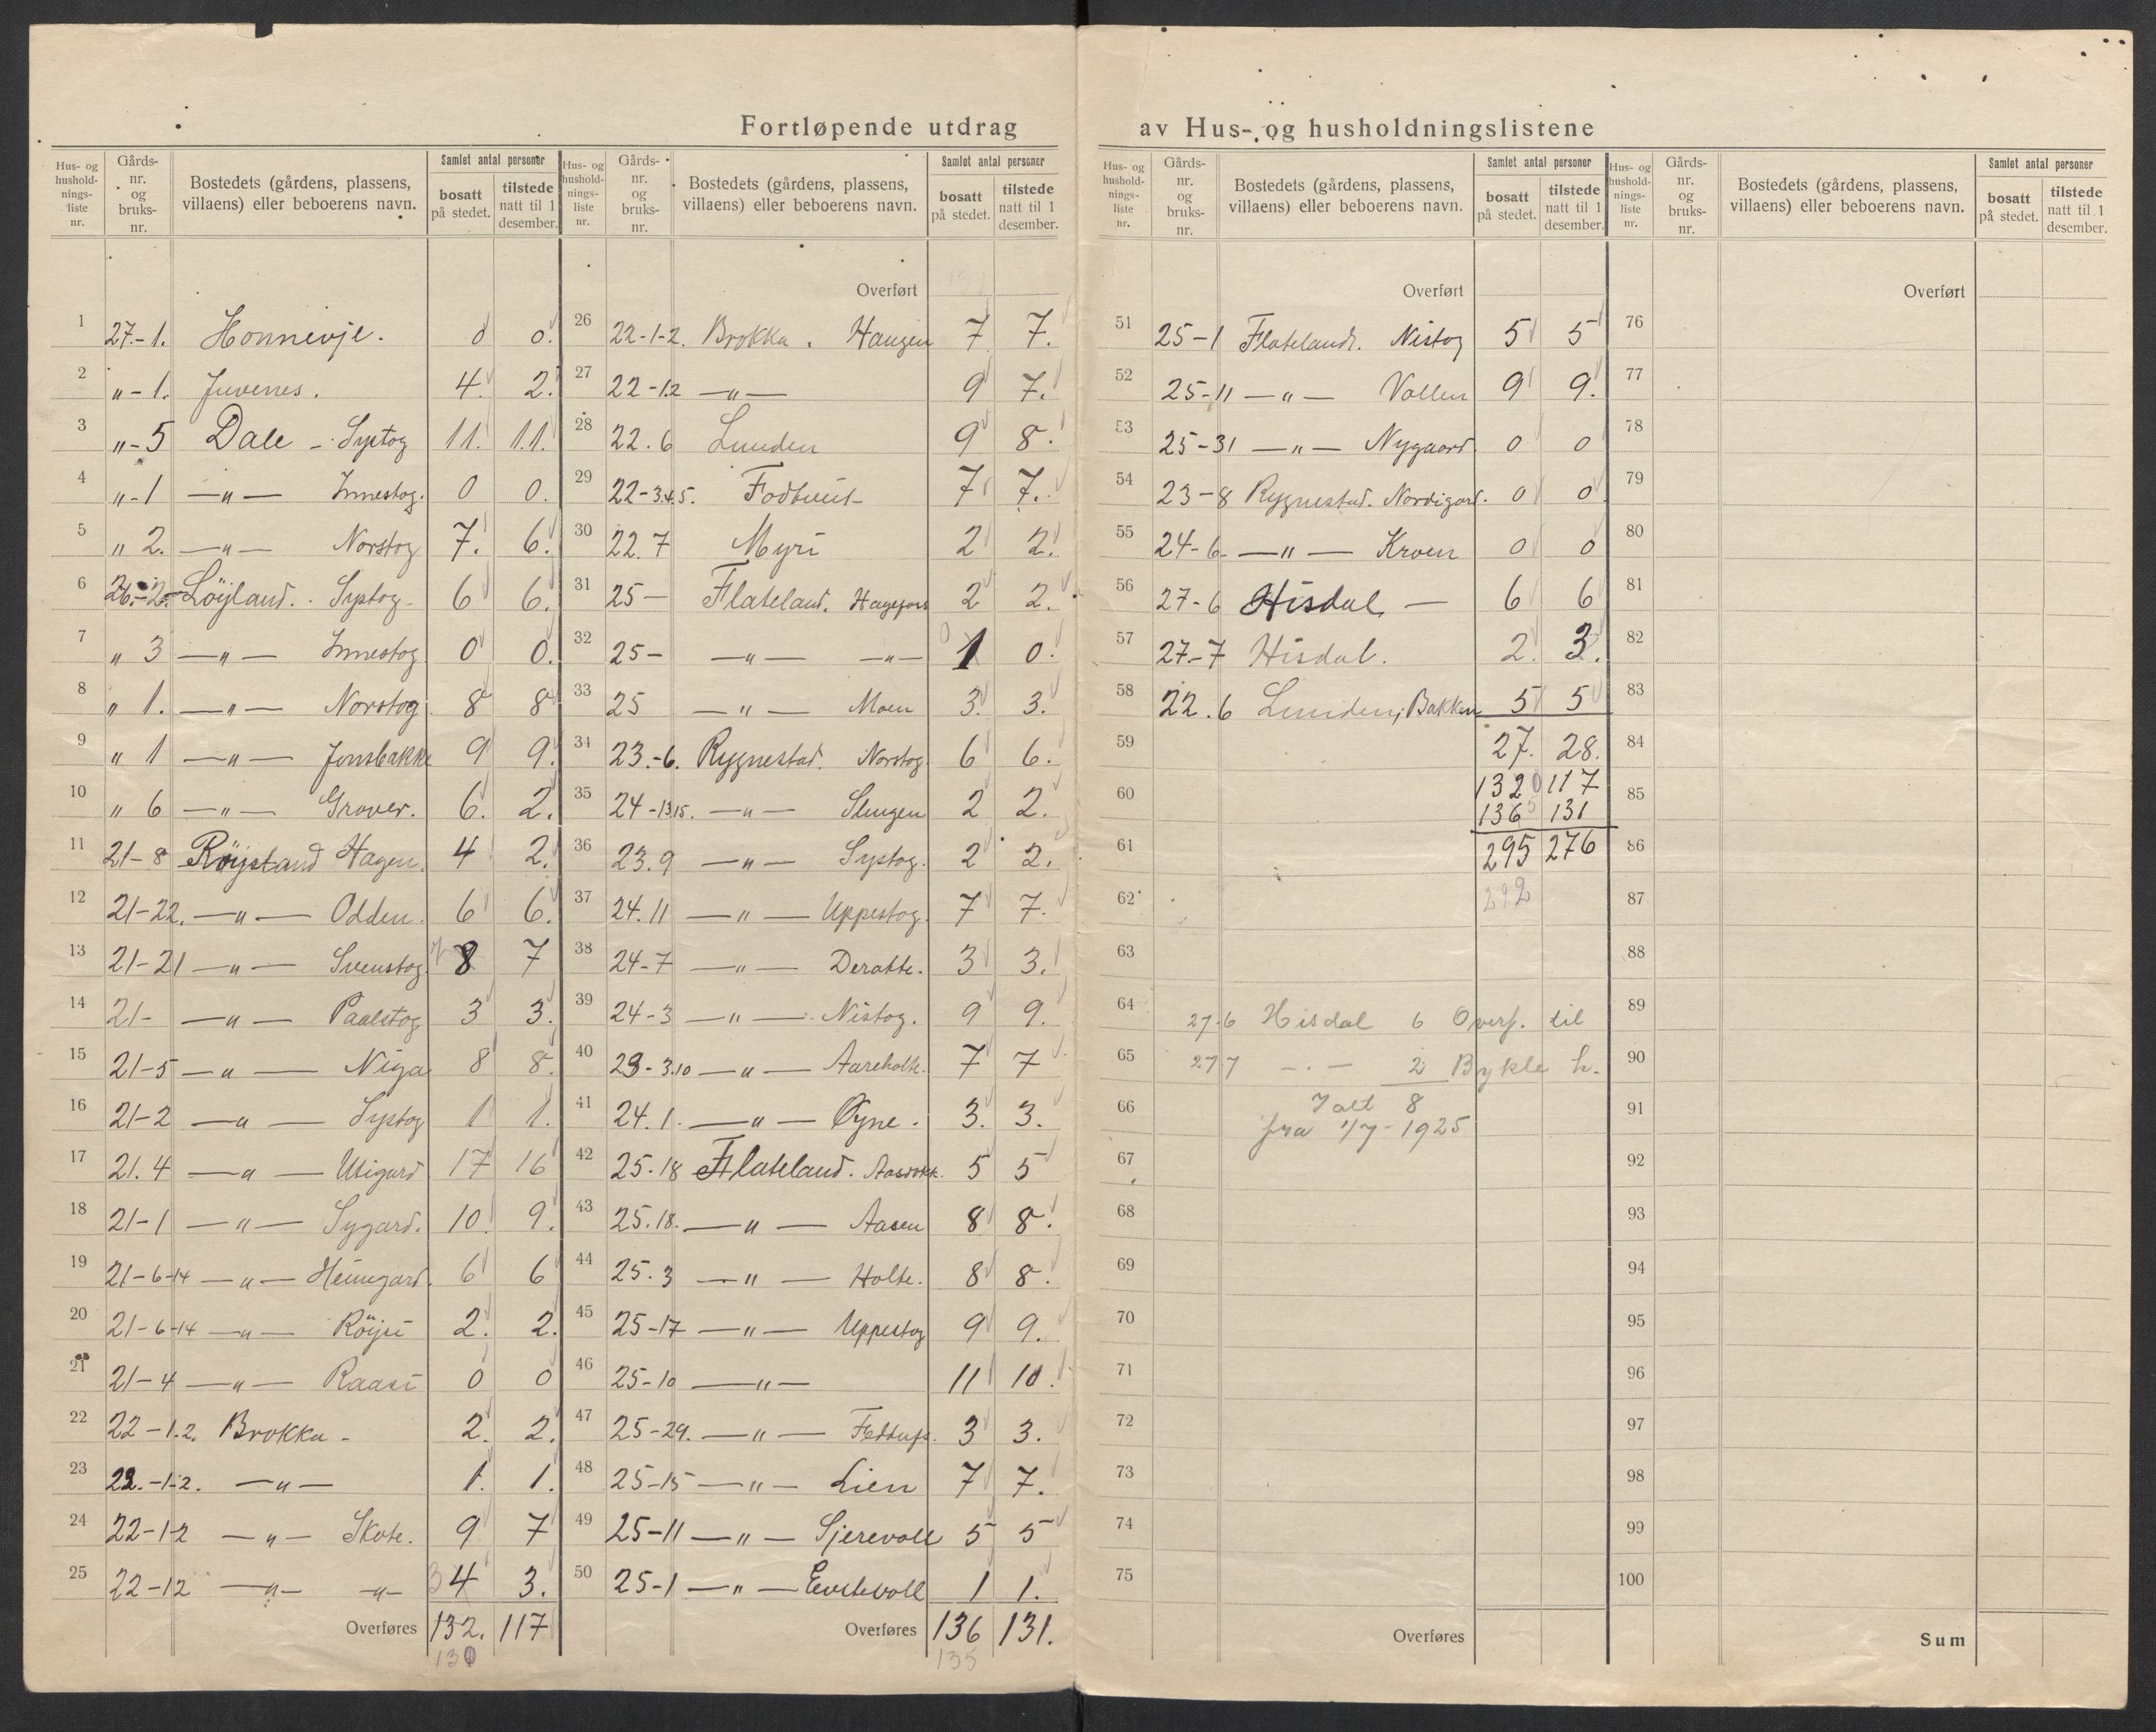 Fortløpende utdrag av Hus- og husholdningslistene
Hus- og hushold-nings-liste nr. | Gårds-nr. og bruks-nr. | Bostedets (gårdens, plassens, villaens) eller beboerens navn. | Samlet antal personer | bosatt på stedet. | tilstede natt til 1 desember.
1 27.-1. Honnevje. 0 0.
2 „-1. Juvenes. 4. 2.
3 „-5 Dale - Systog 11. 11.
4 „-1 —„— Innestog. 0 0.
5 „ 2. —„— Norstog 7. 6.
6 26.-2.- Löyland. Systog- 6 6.
7 „ 3 —„— Innestog 0 0.
8 „ 1. —„— Norstog 8 8
9 „ 1 —„— Jonsbakke 9 9.
10 „ 6 —„— Grover. 6. 2.
11 21-8 Röystand Hagen. 4 2.
12 21-22. —„— Odden. 6 6.
13 21-21 —„— Svenstog 7 8 7
14 21- —„— Paalstog 3 3.
15 21-5 —„— Niga 8 8.
16 21-2 —„— Systog 1 1.
17 21.4 —„— Utigard 17 16
18 21-1 —„— Sygard. 10. 9.
19 21-6-14 —„— Heimegard. 6 6
20 21-6-14 —„— Röysi 2. 2.
21 21-4 —„— Raasi 0 0
22 22-1.2. Brokka - 2. 2.
23 22.-1-2. —„— 1. 1.
24 22-1-2 —„— Skote. 9 7
25 22-12 —„— —„— 3 4 3.
Overføres 132. 117
130
Hus- og hushold-nings-liste nr. | Gårds-nr. og bruks-nr. | Bostedets (gårdens, plassens, villaens) eller beboerens navn. | Samlet antal personer | bosatt på stedet. | tilstede natt til 1 desember.
Overført
26 22-1-2. Brokka. Haugen 7 7.
27 22-1.2 —„— 9 7.
28 22.6 Lunden 9 8.
29 22-3.4.5. 7 7.
30 22.7 Myri 2 2.
31 25- Flateland. Hagefors 2 2.
32 25- —„— —„— 0 1 0.
33 25 —„— Moen 3. 3.
34 23.-6. Rygnestad. Norstog 6 6.
35 24-13.15. —„— Slengen 2 2.
36 23.9 —„— Systog. 2 2.
37 24.11 —„— Uppestog. 7 7.
38 24-7 —„— Deratte. 3 3.
39 24-3 —„— Nistog. 9 9.
40 23-3.10 —„— Aareholt. 7 7
41 24.1. —„— Øyne. 3. 3.
42 25.18 Flateland. 5 5
43 25.18. —„— Aasen 8 8.
44 25.3 —„— Holte. 8 8.
45 25-17 —„— Uppestog 9 9.
46 25-10 —„— 11 10.
47 25-29. —„— 3 3.
48 25-15 —„— Lien 7 7.
49 25-11 —„— Sjerevoll 5 5
50 25-1 —„— 1 1.
Overføres 136 131.
135
Hus- og hushold-nings-liste nr. | Gårds-nr. og bruks-nr. | Bostedets (gårdens, plassens, villaens) eller beboerens navn. | Samlet antal personer | bosatt på stedet. | tilstede natt til 1 desember.
Overført
51 25-1 Flateland. Nistog 5 5
52 25-11 —„— Vollen 9 9.
53 25-31 —„— Nygaard 0 0
54 23-8 Rygnestad. Nordigard. 0 0
55 24-6- —„— Kroen 0 0
56 27-6 Hisdal. — 6 6
57 27-7 Hisdal. 2. 3.
58 22.6 Lunden, Bakken 5 5
59 27. 28.
132 0 117
60 136 5 131
61 295 276
62 292
63
64 27-6 Hisdal 6 Overf. til
65 27 7 -.- 2 Bykle h.
66 I alt 8
fra 1/7-1925
67
68
69
70
71
72
73
74
75
Overføres
Hus- og hushold-nings-liste nr. | Gårds-nr. og bruks-nr. | Bostedets (gårdens, plassens, villaens) eller beboerens navn. | Samlet antal personer | bosatt på stedet. | tilstede natt til 1 desember.
Overført
76
77
78
79
80
81
82
83
84
85
86
87
88
89
90
91
92
93
94
95
96
97
98
99
100
Sum